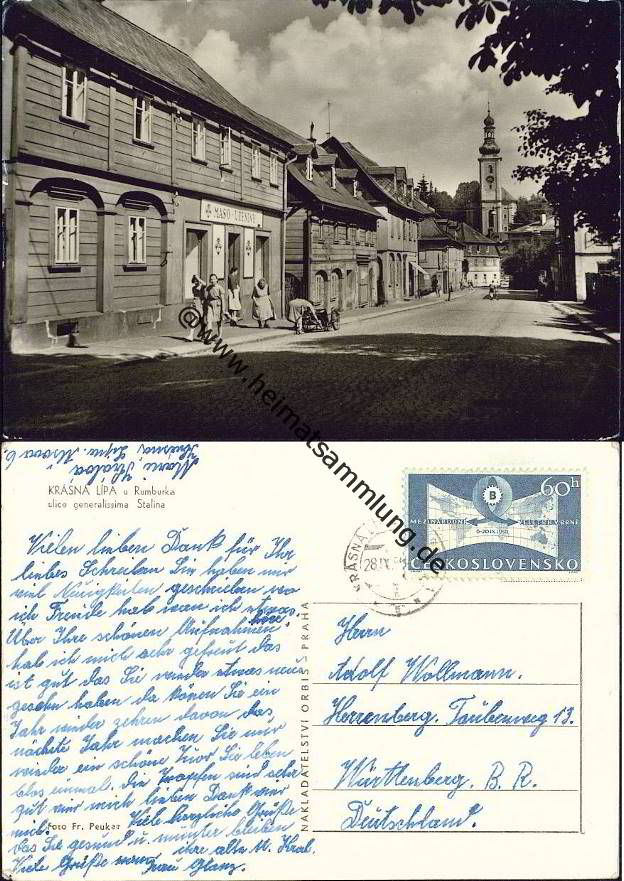 MASO-UZENINY
© www.heimatsammlung.de
Marie Králová
Krásná Lípa
KRÁSNÁ LÍPA u Rumburka
ulice generalissima Stalina
60h
B
MEZINÁRODNÍ VELETRH V BRNĚ
6-20.IX.1959
ČESKOSLOVENSKO
KRÁSNÁ
28.IX.
Vielen lieben Dank für Ihr
liebes Schreiben Sie haben mir
viel Neuigkeiten geschrieben wo
ich Freude hab wenn ich etwas
höre.
Über Ihre schönen Aufnahmen
hab ich mich sehr gefreut das
ist gut das Sie wieder etwas neues
gesehn haben da könen Sie ein
Jahr wieder zehren davon das
nächste Jahr machen Sie mir
wieder ein schöne Tour Sie leben
blos einmal. Die Tropfen sind sehr
gut mir noch lieben Dank
Viele herzliche Grüße
das Sie gesund u. munter bleiben
ihre alte M. Kral.
Viele Grüße Frau Glanz.
Foto Fr. Peuker
NAKLADATELSTVÍ ORBIS PRAHA
Herrn
Adolf Wollmann.
Herrenberg. Taubenweg 13.
Württenberg. B. R.
Deutschland.